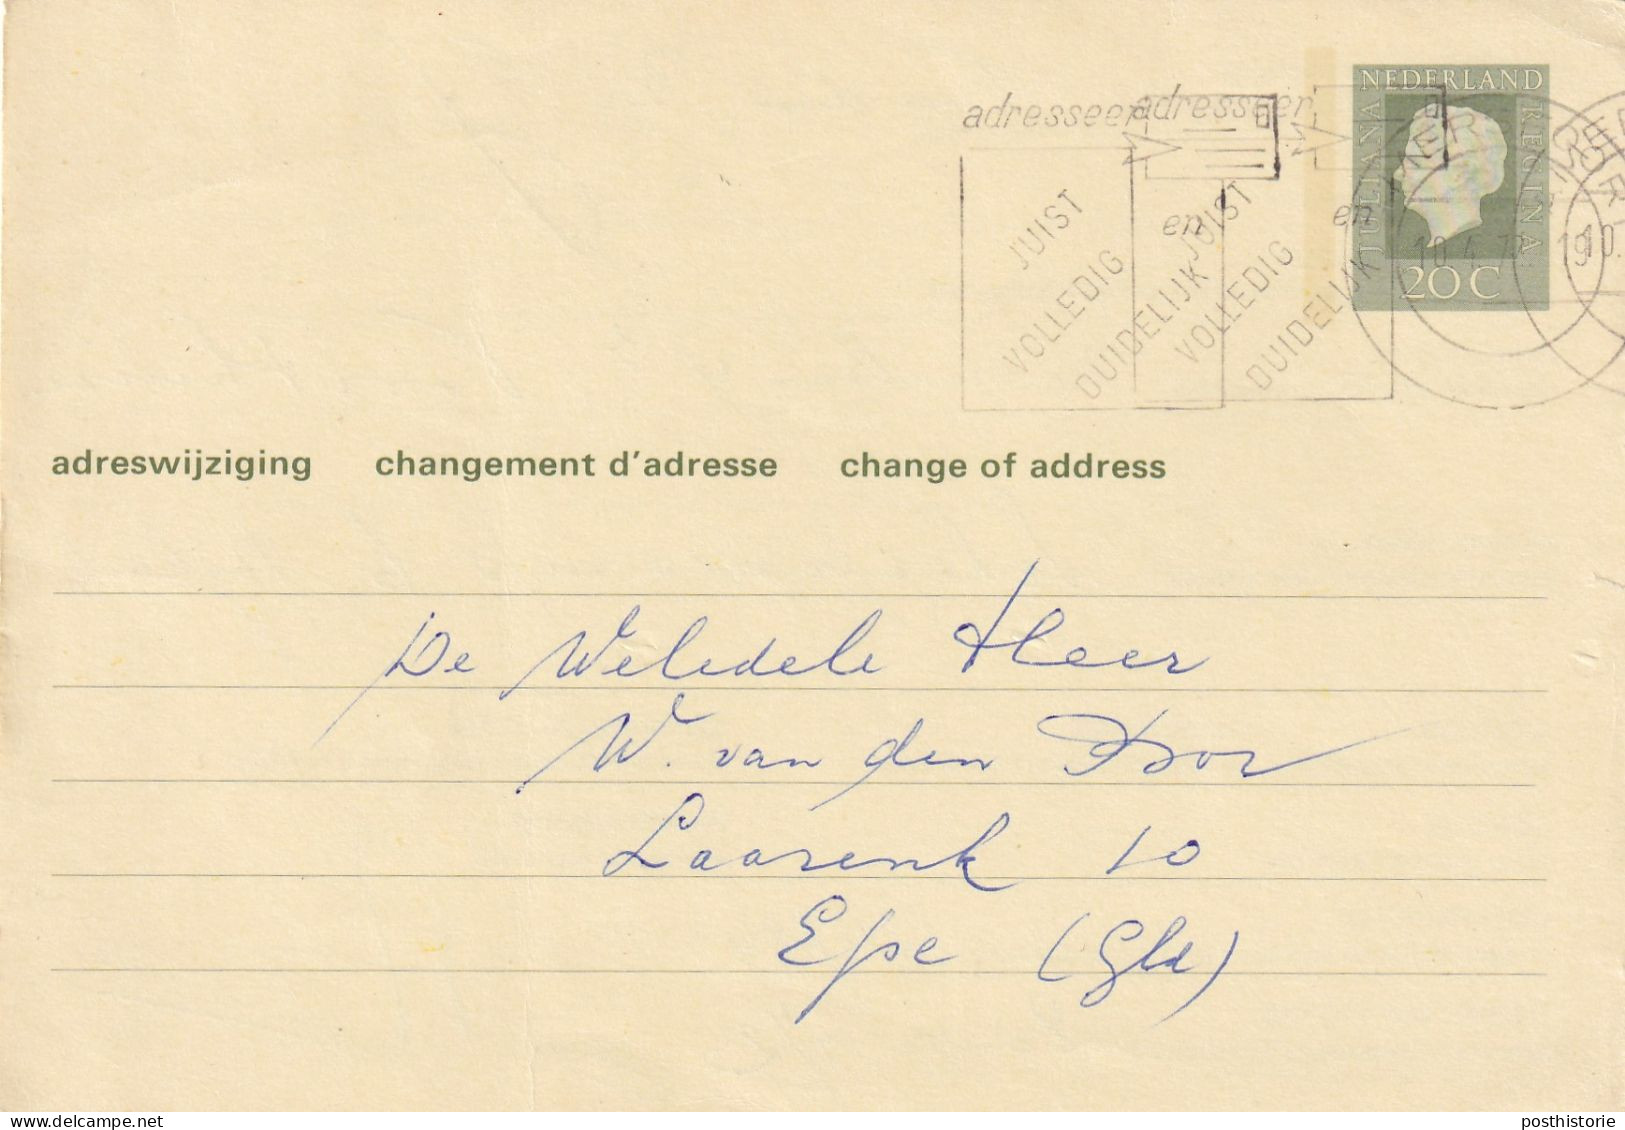 NEDERLAND
JULIANA
REGINA
20 C
adresseer adresseer
JUIST JUIST
en en
VOLLEDIG VOLLEDIG
DUIDELIJK DUIDELIJK
10.4.72. 19 10.
adreswijziging changement d'adresse change of address
De Weledele Heer
W. van den
Laarenk 10
Epe (Gld)
posthistorie